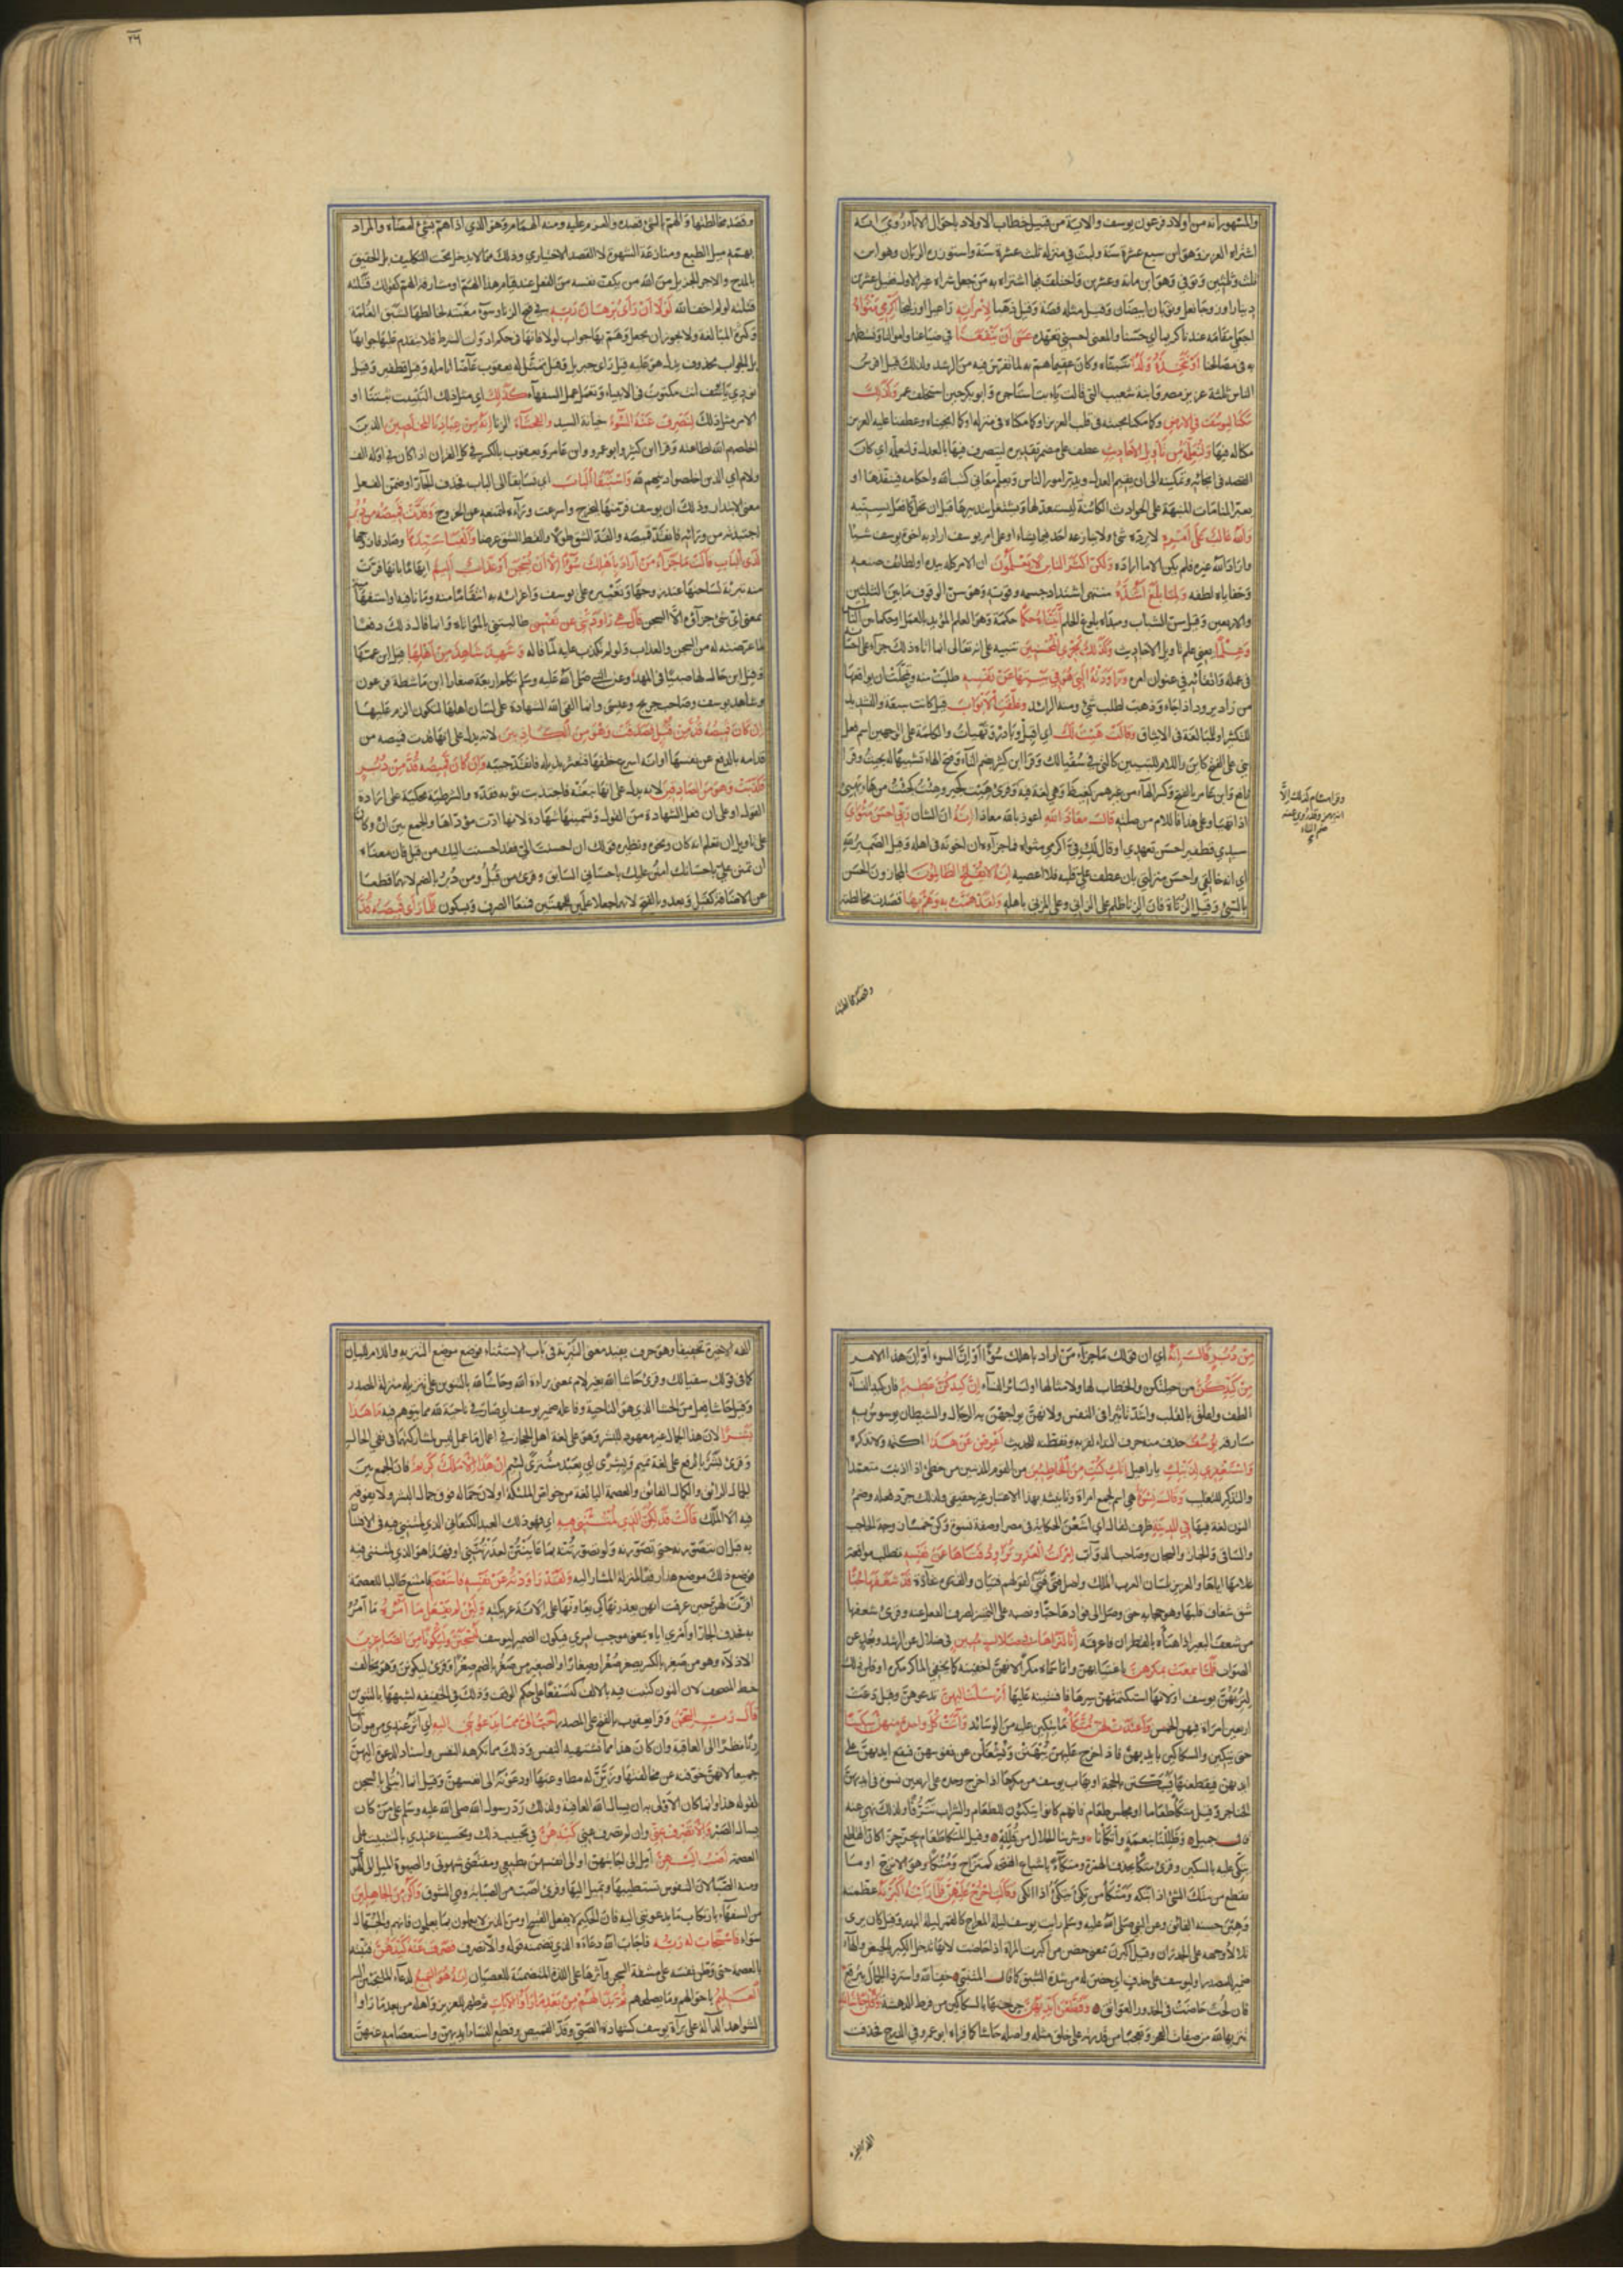 والمشهور انه من اولاد فرعون يوسف والاية من قبيل خطاب الاولاد باحوال الاباء روي انه
اشتراه العزيز وهو ابن سبع عشرة سنة ولبث في منزله ثلث عشرة سنة واستوزره الريان وهو ابن
ثلث وثلثين وتوفي وهو ابن مائة وعشرين واختلف فيما اشتراه به من جعل شراه غير الاول فقيل عشرين
دينارا وزوجا نعل وثوبان ابيضان وقيل مثله فضة وقيل ذهبا لامرأته راعيل او زليخا اكرمي مثواه
اجعلي مقامه عندنا كريما اي حسنا والمعنى احسني تعهده عسى ان ينفعنا في ضياعنا واموالنا ونستظهر
به في مصالحنا او نتخذه ولدا نتبناه وكان عقيما لما تفرس فيه من الرشد ولذلك قيل افرس
الناس ثلثة عزيز مصر وابنة شعيب التي قالت يا ابت استأجره وابو بكر حين استخلف عمر وكذلك
مكنا ليوسف في الارض وكما مكنا محبته في قلب العزيز او كما مكناه في منزله او كما انجيناه وعطفنا عليه العزيز
مكنا له فيها ولنعلمه من تأويل الاحاديث عطف على مضمر تقديره ليتصرف فيها بالعدل ولنعلمه اي كان
القصد في انجائه وتمكينه الى ان يقيم العدل ويدبر امور الناس ويعلم معاني كتب الله واحكامه فينفذها او
يعبر المنامات المنبهة على الحوادث الكائنة ليستعد لها ويشتغل بتدبيرها قبل ان تحل كما فعل بسنيه
والله غالب على امره لا يرده شئ ولا ينازعه احد فيما يشاء او على امر يوسف اراد به اخوة يوسف شيئا
واراد الله غيره فلم يكن الا ما اراده ولكن اكثر الناس لا يعلمون ان الامر كله بيده او لطائف صنعه
وخفايا لطفه ولما بلغ اشده منتهى اشتداد جسمه وقوته وهو سن الوقوف ما بين الثلثين
والاربعين وقيل سن الشباب ومبداه بلوغ الحلم آتيناه حكما حكمة وهو العلم المؤيد بالعمل او حكما بين الناس
وعلما يعني علم تأويل الاحاديث وكذلك نجزي المحسنين تنبيه على انه تعالى انما اتاه ذلك جزاء على احسانه
في عمله واتقائه في عنفوان امره وراودته التي هو في بيتها عن نفسه طلبت منه وتمحلت ان يواقعها
من راد يرود اذا جاء وذهب لطلب شئ ومنه الرائد وغلقت الابواب قيل كانت سبعة والتشديد
للتكثير او للمبالغة في الايثاق وقالت هيت لك اي اقبل وبادر او تهيأت والكلمة على الوجهين اسم فعل
بني على الفتح كاين واللام للتبيين كالتي في سقيا لك وقرا ابن كثير بضم التاء وفتح الهاء تشبيها له بحيث وقرا
نافع وابن عامر بالفتح وكسر الهاء من غير همز كغيظ وهي لغة فيه وقرئ هيت كجير وهئت كجئت من هاء يهيئ
اذا تهيأ وعلى هذا فاللام من صلته قال معاذ الله اعوذ بالله معاذا انه ان الشان ربي احسن مثواي
سيدي قطفير احسن تعهدي اذ قال لك في اكرمي مثواه فما جزاؤه ان اخونه في اهله وقيل الضمير لله
اي انه خالقي واحسن منزلتي بان عطف علي قلبه فلا اعصيه انه لا يفلح الظالمون المجازون الحسن
بالسيئ وقيل الزناة فان الزنا ظلم على الزاني وعلى المزني باهله ولقد همت به وهم بها قصدت مخالطته
وقصد مخالطتها
٢٦
وقصد مخالطتها والهم بالشئ قصده والعزم عليه ومنه الهمام وهو الذي اذا هم بشئ امضاه والمراد
بهمه ميل الطبع ومنازعة الشهوة لا القصد الاختياري وذلك مما لا يدخل تحت التكليف بل الحقيق
بالمدح والاجر الجزيل من الله من يكف نفسه من الفعل عند قيام هذا الهم او مشارفة الهم كقولك قتلته
لو لم اخف الله لولا ان رأى برهان ربه في قبح الزنا وسوء مغبته لخالطها لشبق الغلمة
وكثرة المبالغة ولا يجوز ان يجعل وهم بها جواب لولا فانها في حكم ادوات الشرط فلا يتقدم عليها جوابها
بل الجواب محذوف يدل هو عليه قيل راى جبريل وقيل تمثل له يعقوب عاضا على انامله وقيل قطفير وقيل
نودي يا يوسف انت مكتوب في الانبياء وتعمل عمل السفهاء كذلك اي مثل ذلك التثبيت ثبتناه او
الامر مثل ذلك لنصرف عنه السوء خيانة السيد والفحشاء الزنا انه من عبادنا المخلصين الذين
اخلصهم الله لطاعته وقرا ابن كثير وابو عمرو وابن عامر ويعقوب بالكسر في كل القران اذا كان في اوله الف
ولام اي الذين اخلصوا دينهم لله واستبقا الباب اي تسابقا الى الباب فحذف الجار او ضمن الفعل
معنى الابتدار وذلك ان يوسف فر منها ليخرج واسرعت وراءه لتمنعه عن الخروج وقدت قميصه من دبر
اجتذبته من ورائه فانقد قميصه والقد الشق طولا والقط الشق عرضا والفيا سيدها وصادفا زوجها
لدى الباب قالت ما جزاء من اراد باهلك سوءا الا ان يسجن او عذاب اليم ايهاما بانها فرت
منه تبرئة لساحتها عند زوجها وتغييره على يوسف واغراءه به انتقاما منه وما نافية او استفهامية
بمعنى اي شئ جزاؤه الا السجن قال هي راودتني عن نفسي طالبتني بالمؤاتاة وانما قال ذلك دفعا
لما عرضته له من السجن والعذاب ولو لم تكذب عليه لما قاله وشهد شاهد من اهلها قيل ابن عمتها
وقيل ابن خال لها صبيا في المهد وعن النبي صلى الله عليه وسلم تكلم اربعة صغارا ابن ماشطة فرعون
وشاهد يوسف وصاحب جريج وعيسى وانما القى الله الشهادة على لسان اهلها لتكون الزم عليها
ان كان قميصه قد من قبل فصدقت وهو من الكاذبين لانه يدل على انها قدت قميصه من
قدامه بالدفع عن نفسها او انه اسرع خلفها فتعثر بذيله فانقد جيبه وان كان قميصه قد من دبر
فكذبت وهو من الصادقين لانه يدل على انها تبعته فاجتذبت ثوبه فقدته والشرطية محكية على ارادة
القول او على ان فعل الشهادة من القول وتسميتها شهادة لانها ادت مؤداها والجمع بين ان وكان
على تاويل ان تعلم انه كان ونحوه ونظيره قولك ان احسنت الي فقد احسنت اليك من قبل فان معناه
ان تمنن علي باحسانك امنن عليك باحساني السابق وقرئ من قبل ومن دبر بالضم لانهما قطعا
عن الاضافة كقبل وبعد وبالفتح لانه جعلا علمين للجهتين فمنعا الصرف وبسكون فلما رأى قميصه قد
من دبر قال انه اي ان قولك ما جزاء من اراد باهلك سوءا او ان السوء او ان هذا الامر
من كيدكن من حيلتكن والخطاب لها ولامثالها او لسائر النساء ان كيدكن عظيم فان كيد النساء
الطف واعلق بالقلب واشد تاثيرا في النفس ولانهن يواجهن به الرجال والشيطان يوسوس به
مسارقة يوسف حذف منه حرف النداء لقربه وتفطنه للحديث اعرض عن هذا اكتمه ولا تذكره
واستغفري لذنبك يا راعيل انك كنت من الخاطئين من القوم المذنبين من خطئ اذا اذنب متعمدا
والتذكير للتغليب وقال نسوة هي اسم لجمع امراة وتانيثه بهذا الاعتبار غير حقيقي ولذلك جرد فعله وضم
النون لغة فيها في المدينة ظرف لقال اي اشعن الحكاية في مصر او صفة نسوة وكن خمسا زوجة الحاجب
والساقي والخباز والسجان وصاحب الدواب امرأت العزيز تراود فتاها عن نفسه تطلب مواقعة
غلامها اياها والعزيز بلسان العرب الملك واصل فتى فتي لقولهم فتيان والفتوة شاذة قد شغفها حبا
شق شغاف قلبها وهو حجابه حتى وصل الى فؤادها حبا ونصبه على التمييز لصرف الفعل عنه وقرئ شعفها
من شعف البعير اذا هنأه بالقطران فاحرقه انا لنراها في ضلال مبين في ضلال عن الرشد وبعد عن
الصواب فلما سمعت بمكرهن باغتيابهن وانما سماه مكرا لانهن اخفينه كما يخفي الماكر مكره او قلن ذلك
لتريهن يوسف او لانها استكتمتهن سرها فافشينه عليها ارسلت اليهن تدعوهن وقيل دعت
اربعين امراة فيهن الخمس واعتدت لهن متكأ ما يتكين عليه من الوسائد وآتت كل واحدة منهن سكينا
حتى يتكين والسكاكين بايديهن فاذا خرج عليهن يبهتن ويشتغلن عن نفوسهن فتقع ايديهن على
ايديهن فيقطعنها فيبكتن بالحجة او يهاب يوسف من مكرها اذا خرج وحده على اربعين نسوة في ايديهن
الخناجر وقيل متكأ طعاما او مجلس طعام فانهم كانوا يتكئون للطعام والشراب تترفا ولذلك نهي عنه
قال جميل فظللنا بنعمة واتكأنا وشربنا الحلال من قلله وقيل المتكأ طعام يحز حزا كان القاطع
يتكئ عليه بالسكين وقرئ متكا بحذف الهمزة ومتكاء باشباع الفتحة كمنتزاح ومتكا وهو الاترج او ما
يقطع من متك الشئ اذا بتكه ومتكأ من تكئ يتكأ اذا اتكى وقالت اخرج عليهن فلما رأينه اكبرنه عظمنه
وهبن حسنه الفائق وعن النبي صلى الله عليه وسلم رايت يوسف ليلة المعراج كالقمر ليلة البدر وقيل كان يرى
تلألأ وجهه على الجدران وقيل اكبرن بمعنى حضن من اكبرت المراة اذا حاضت لانها تدخل الكبر بالحيض والهاء
ضمير للمصدر او ليوسف على حذف اي حضن له من شدة الشبق كما قال المتنبي خف الله واستر ذا الجمال ببرقع
فان لحت حاضت في الخدور العواتق وقطعن ايديهن جرحنها بالسكاكين من فرط الدهشة وقلن حاش لله
تنزيها لله من صفات العجز وتعجبا من قدرته على خلق مثله واصله حاشا كما قراه ابو عمرو في الدرج فحذفت
الفه الاخيرة تخفيفا وهو حرف يفيد معنى التنزيه في باب الاستثناء فوضع موضع التنزيه واللام للبيان
كما في قولك سقيا لك وقرئ حاشا الله بغير لام بمعنى براءة الله وحاشا لله بالتنوين على تنزيله منزلة المصدر
وقيل حاشا فاعل من الحشا الذي هو الناحية وفاعله ضمير يوسف اي صار في ناحية لله مما يتوهم فيه ما هذا
بشرا لان هذا الجمال غير معهود للبشر وهو على لغة اهل الحجاز في اعمال ما عمل ليس لمشاركتها في نفي الحال
وقرئ بشر بالرفع على لغة تميم وبشرى اي بعبد مشترى لئيم ان هذا الا ملك كريم فان الجمع بين
الجمال الرائق والكمال الفائق والعصمة البالغة من خواص الملئكة او لان جماله فوق جمال البشر ولا يفوقه
فيه الا الملك قالت فذلكن الذي لمتنني فيه اي فهو ذلك العبد الكنعاني الذي لمتنني فيه في الافتتان
به قبل ان تتصورنه حق تصوره ولو تصورتنه بما عاينتن لعذرتنني او فهذا هو الذي لمتنني فيه
فوضع ذلك موضع هذا رفعا لمنزلة المشار اليه ولقد راودته عن نفسه فاستعصم فامتنع طالبا للعصمة
اقرت لهن حين عرفت انهن يعذرنها كي يعاونها على الانة عريكته ولئن لم يفعل ما آمره ما آمر
به فحذف الجار او امري اياه بمعنى موجب امري فيكون الضمير ليوسف ليسجنن وليكونا من الصاغرين
الاذلاء وهو من صغر بالكسر يصغر صغرا وصغارا والصغير من صغر بالضم صغرا وقرئ ليكونن وهو يخالف
خط المصحف لان النون كتبت فيه بالالف كنسفعا على حكم الوقف وذلك في الخفيفة لشبهها بالتنوين
قال رب السجن وقرا يعقوب بالفتح على المصدر احب الي مما يدعونني اليه اي آثر عندي من مؤاتاتها
زنا نظرا الى العاقبة وان كان هذا مما تشتهيه النفس وذلك مما تكرهه النفس واسناد الدعوة اليهن
جميعا لانهن خوفنه عن مخالفتها وزين له مطاوعتها او دعونه الى انفسهن وقيل انما ابتلي بالسجن
لقوله هذا وانما كان الاولى به ان يسال الله العافية ولذلك رد رسول الله صلى الله عليه وسلم على من كان
يسال الصبر والا تصرف عني وان لم تصرف عني كيدهن في تحبيب ذلك وتحسينه عندي بالتثبيت على
العصمة اصب اليهن امل الى اجابتهن او الى انفسهن بطبعي ومقتضى شهوتي والصبوة الميل الى الهوى
ومنه الصبا لان النفوس تستطيبها وتميل اليها وقرئ اصب من الصبابة وهي الشوق واكن من الجاهلين
من السفهاء بارتكاب ما يدعونني اليه فان الحكيم لا يفعل القبيح او من الذين لا يعملون بما يعلمون فانهم والجهال
سواء فاستجاب له ربه فاجاب الله دعاءه الذي تضمنه قوله والا تصرف فصرف عنه كيدهن فثبته
بالعصمة حتى وطن نفسه على مشقة السجن وآثرها على اللذة المتضمنة للعصيان انه هو السميع لدعاء الملتجئين اليه
العليم باحوالهم وما يصلحهم ثم بدا لهم من بعد ما رأوا الآيات ثم ظهر للعزيز واهله من بعد ما راوا
الشواهد الدالة على براءة يوسف كشهادة الصبي وقد القميص وقطع النساء ايديهن واستعصامه عنهن